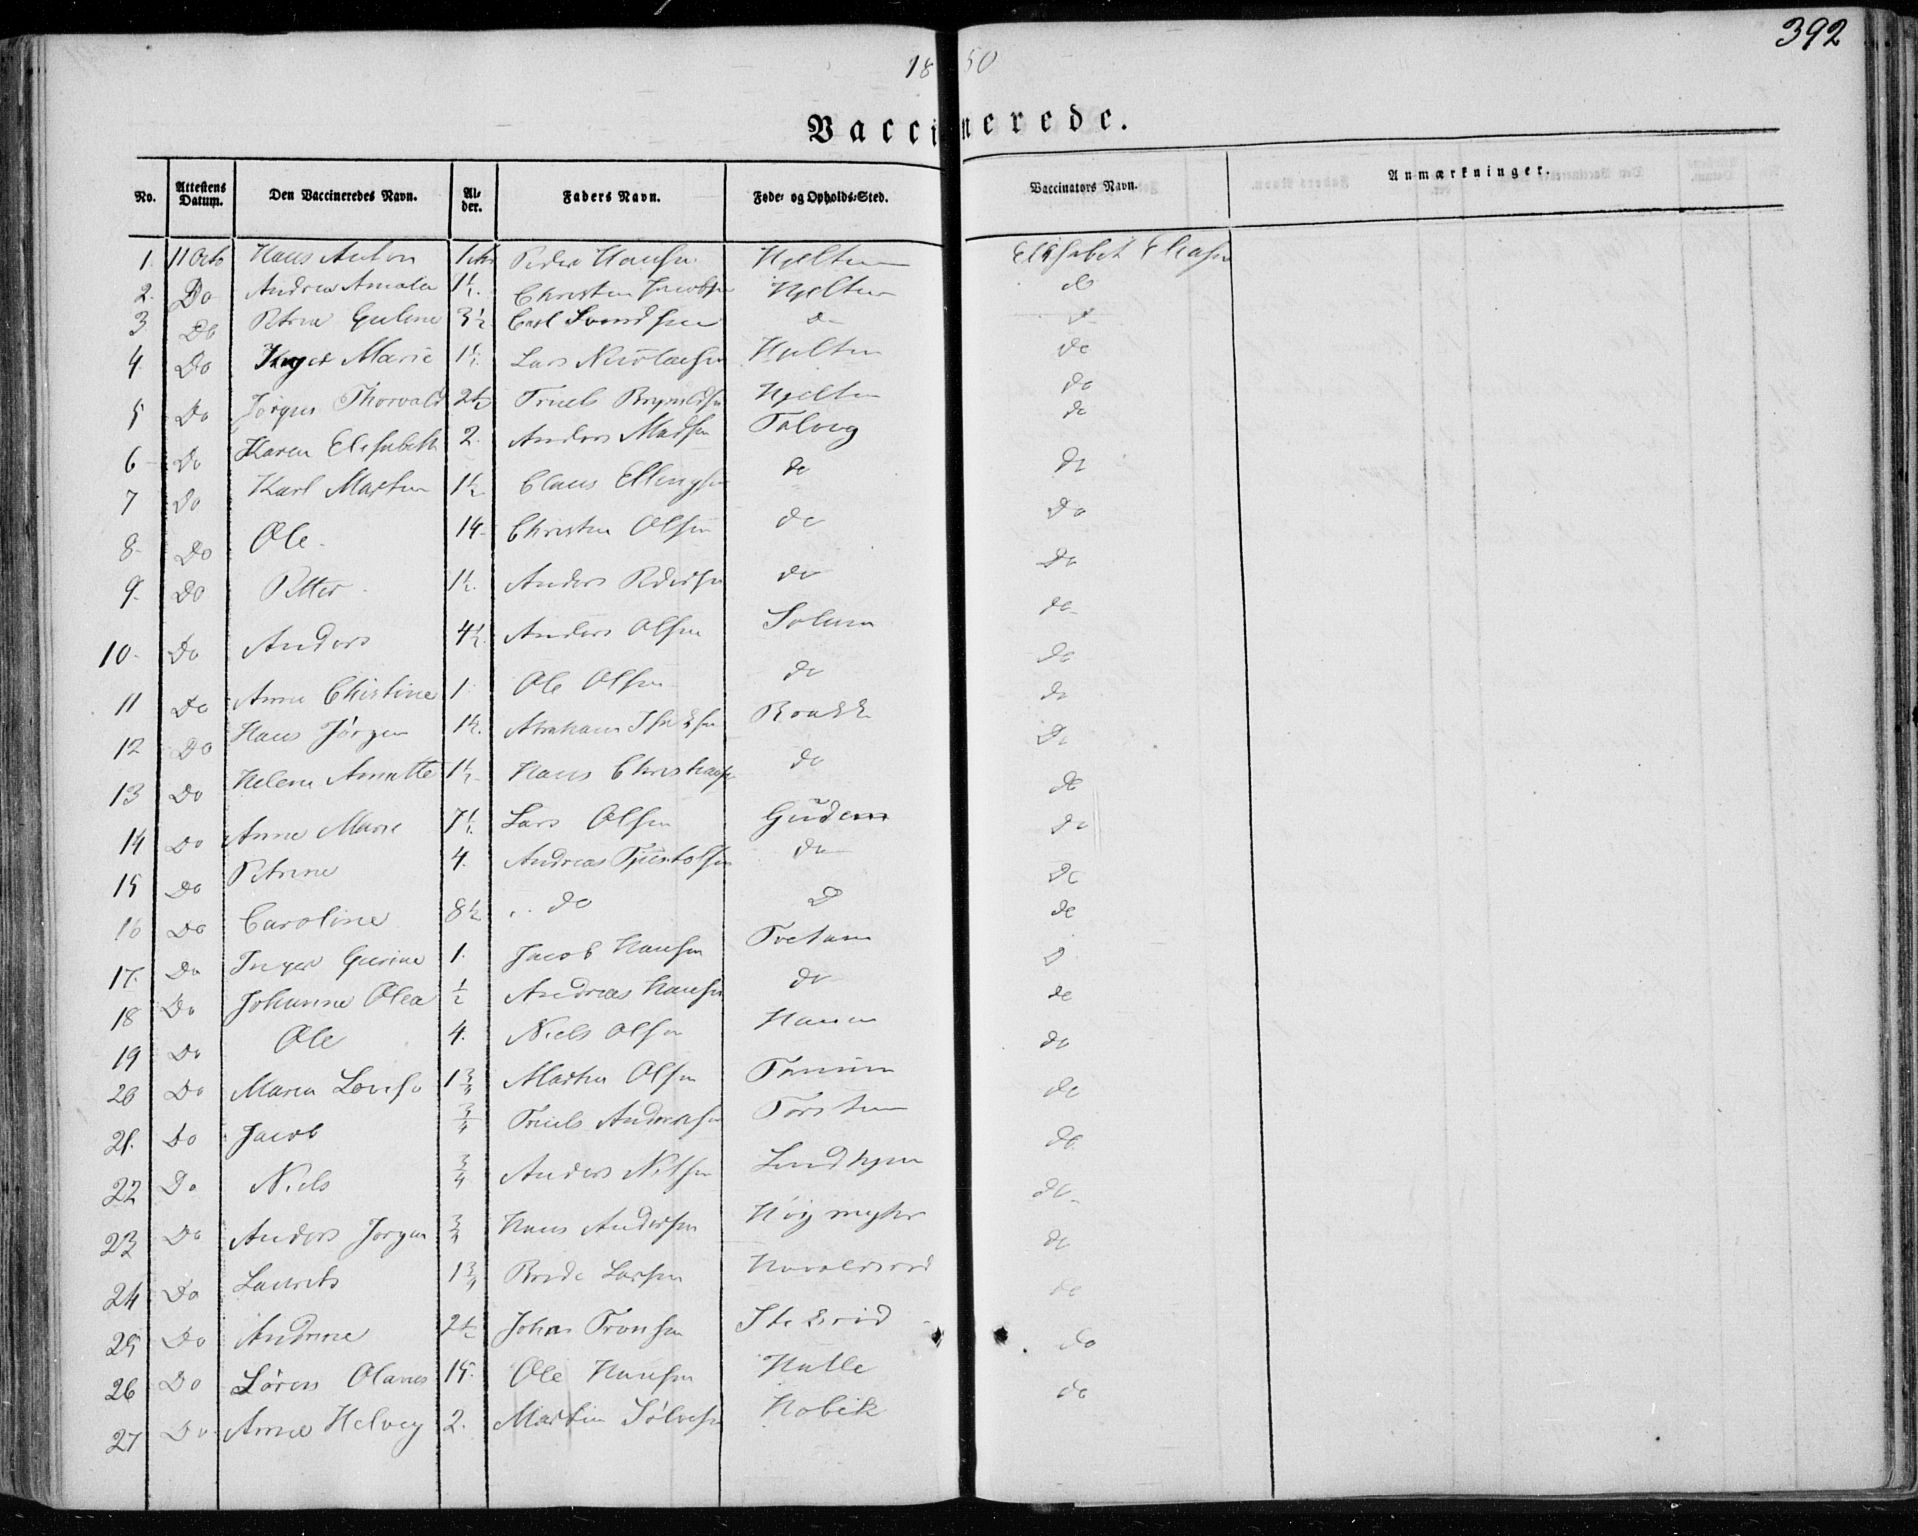 392
1850
Vaccinerede.
No. Attestens Datum. Den Vaccineredes Navn. Al-der. Faders Navn. Føde- og Opholds-Sted. Vaccinators Navn. Anmærkninger.
1. 11 Octo Hans Anton 1 Peder Hansen Hjelten Elisabet Eleasen
2. Do Andrea Amalia 1½. Christen Jacobsen Hjelten do
3 Do Petrea Guline 3½ Carl Svendsen do d
4. Do Inger Marie 1½. Lars Nicolaisen Hjelten do
5 Do Jørgen Thorvald 2½ Truels Brynildsen Hjelten do
6 Do Karen Elisabeth 2. Anders Madsen Tolveg do
7 Do Karl Martin 1½ Claus Ellingsen do do
8. Do Ole. 14. Christen Olsen do Do
9. Do Petter 1½. Anders Pedersen do Do
10. Do Anders 4½. Anders Olsen Solum do
11 Do Anne Christine 1 Ole Olsen do do
12 Do Hans Jørgen 1½. Abraham Isaksen Roakk do
13 Do Helene Annette 1½ Hans Christiansen do Do
14 Do Anne Marie 7½. Lars Olsen Gudem do
15 Do Petrine 4. Andreas Tjøstolsen do do
16 Do Caroline 8½ do D Do
17. Do Inger Gurine 1. Jacob Hansen Tvetan do
18 Do Johanne Olea ½ Andreas Hansen do D
19 Do Ole 4. Niels Olsen Hanen de
20 Do Maren Lovise 1¾ Martin Olsen do
21. Do Jacob ¾ Truels Andersen Torsten do
22 Do Niels ¾ Anders Nilsen Lindhjem do
23 Do Anders Jørgen ¾ Hans Andersen Høijmyhr do
24 Do Laurits 1¾ Brede Larsen Haraldsrød do
25 Do Andrine 2½ Johan Tronsen Stokerød do
26 Do Søren Olaves 15. Ole Hansen Halle do
27 Do Anne Helveg 2. Martin Sølvesen Nobik do